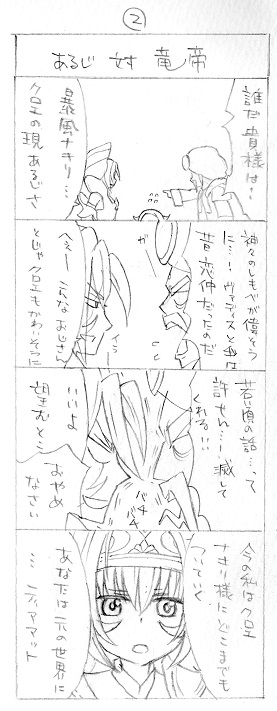 ②
あるじ 対 竜帝
誰だ貴様は…
暴風ナキリ…
クロエの現あるじさ
神々のしもべが偉そう
に…!ヴァディスと余は
昔恋仲だったのだ
ガ
へぇー こんなおじさん
とじゃクロエもかわいそうに
イラッ
若い頃の話…って
許せん…!滅して
くれる…
いいよ
望むとこ
おやめ
なさい
バチ
バチ
今の私はクロエ
ナキリ様にどこまでも
ついていく
あなたは元の世界に
… ティアマット